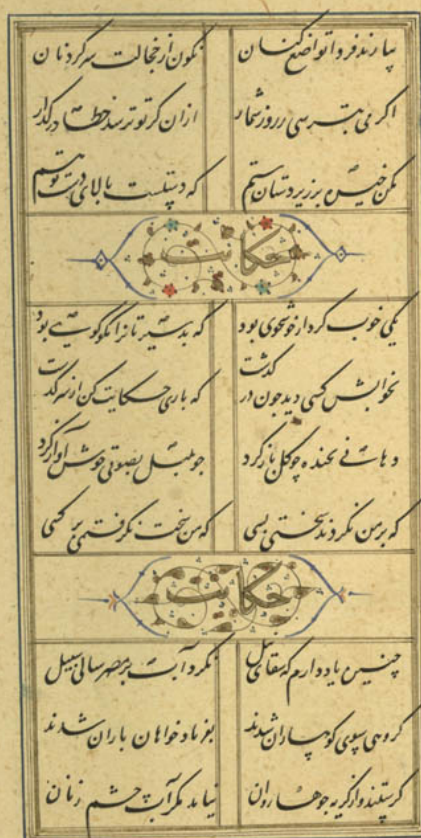 بیارند فردا تواضع کنان نگون از خجالت سر گردنان
اگر می بترسی ز روز شمار ازان کز تو ترسد خطا در گذار
مکن خیره بر زیردستان ستم که دستیست بالای دست تو هم
حکایت
یکی خوب کردار خوشخوی بود که بد سیرتان را نکوگوی بود
بخوابش کسی دید چون در گذشت که باری حکایت کن از سرگذشت
دهانی بخنده چو گل باز کرد چو بلبل بصوتی خوش آواز کرد
که بر من نکردند سختی بسی که من سخت نگرفتمی بر کسی
حکایت
چنین یاد دارم که سقای نیل نکرد آب بر مصر سالی سبیل
گروهی سوی کوهساران شدند بفریاد خواهان باران شدند
گرستند و از گریه جوها روان نیامد مگر آب چشم زنان